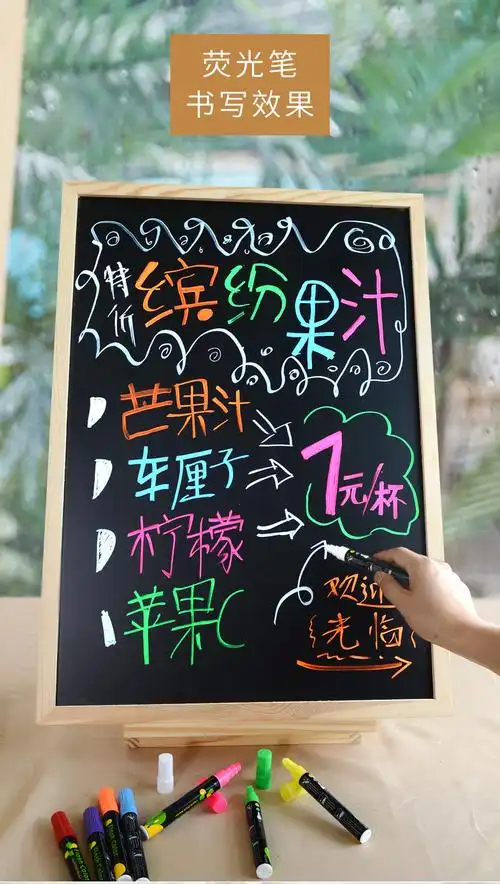 荧光笔
书写效果
特价
缤纷果汁
芒果汁
车厘子
柠檬
苹果
7元/杯
欢迎
光临